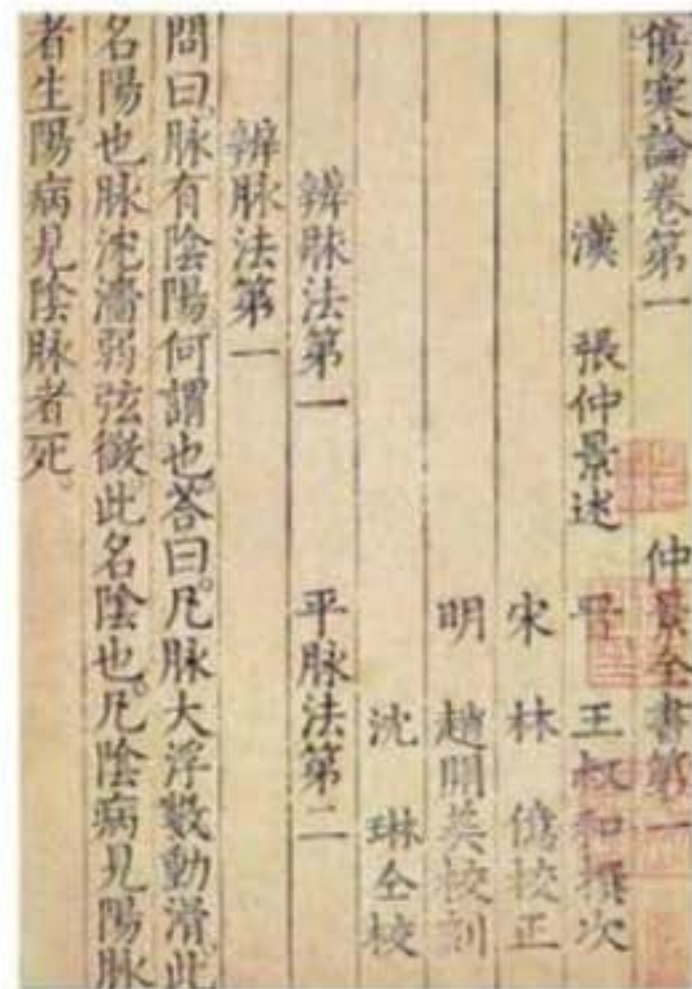 傷寒論卷第一 仲景全書第一
漢 張仲景述 晉 王叔和撰次
宋 林 億校正
明 趙開美校刻
沈 琳仝校
辨脉法第一 平脉法第二
辨脉法第一
問曰。脉有陰陽何謂也。荅曰。凡脉大浮數動滑。此
名陽也。脉沈濇弱弦微。此名陰也。凡陰病見陽脉
者生。陽病見陰脉者死。